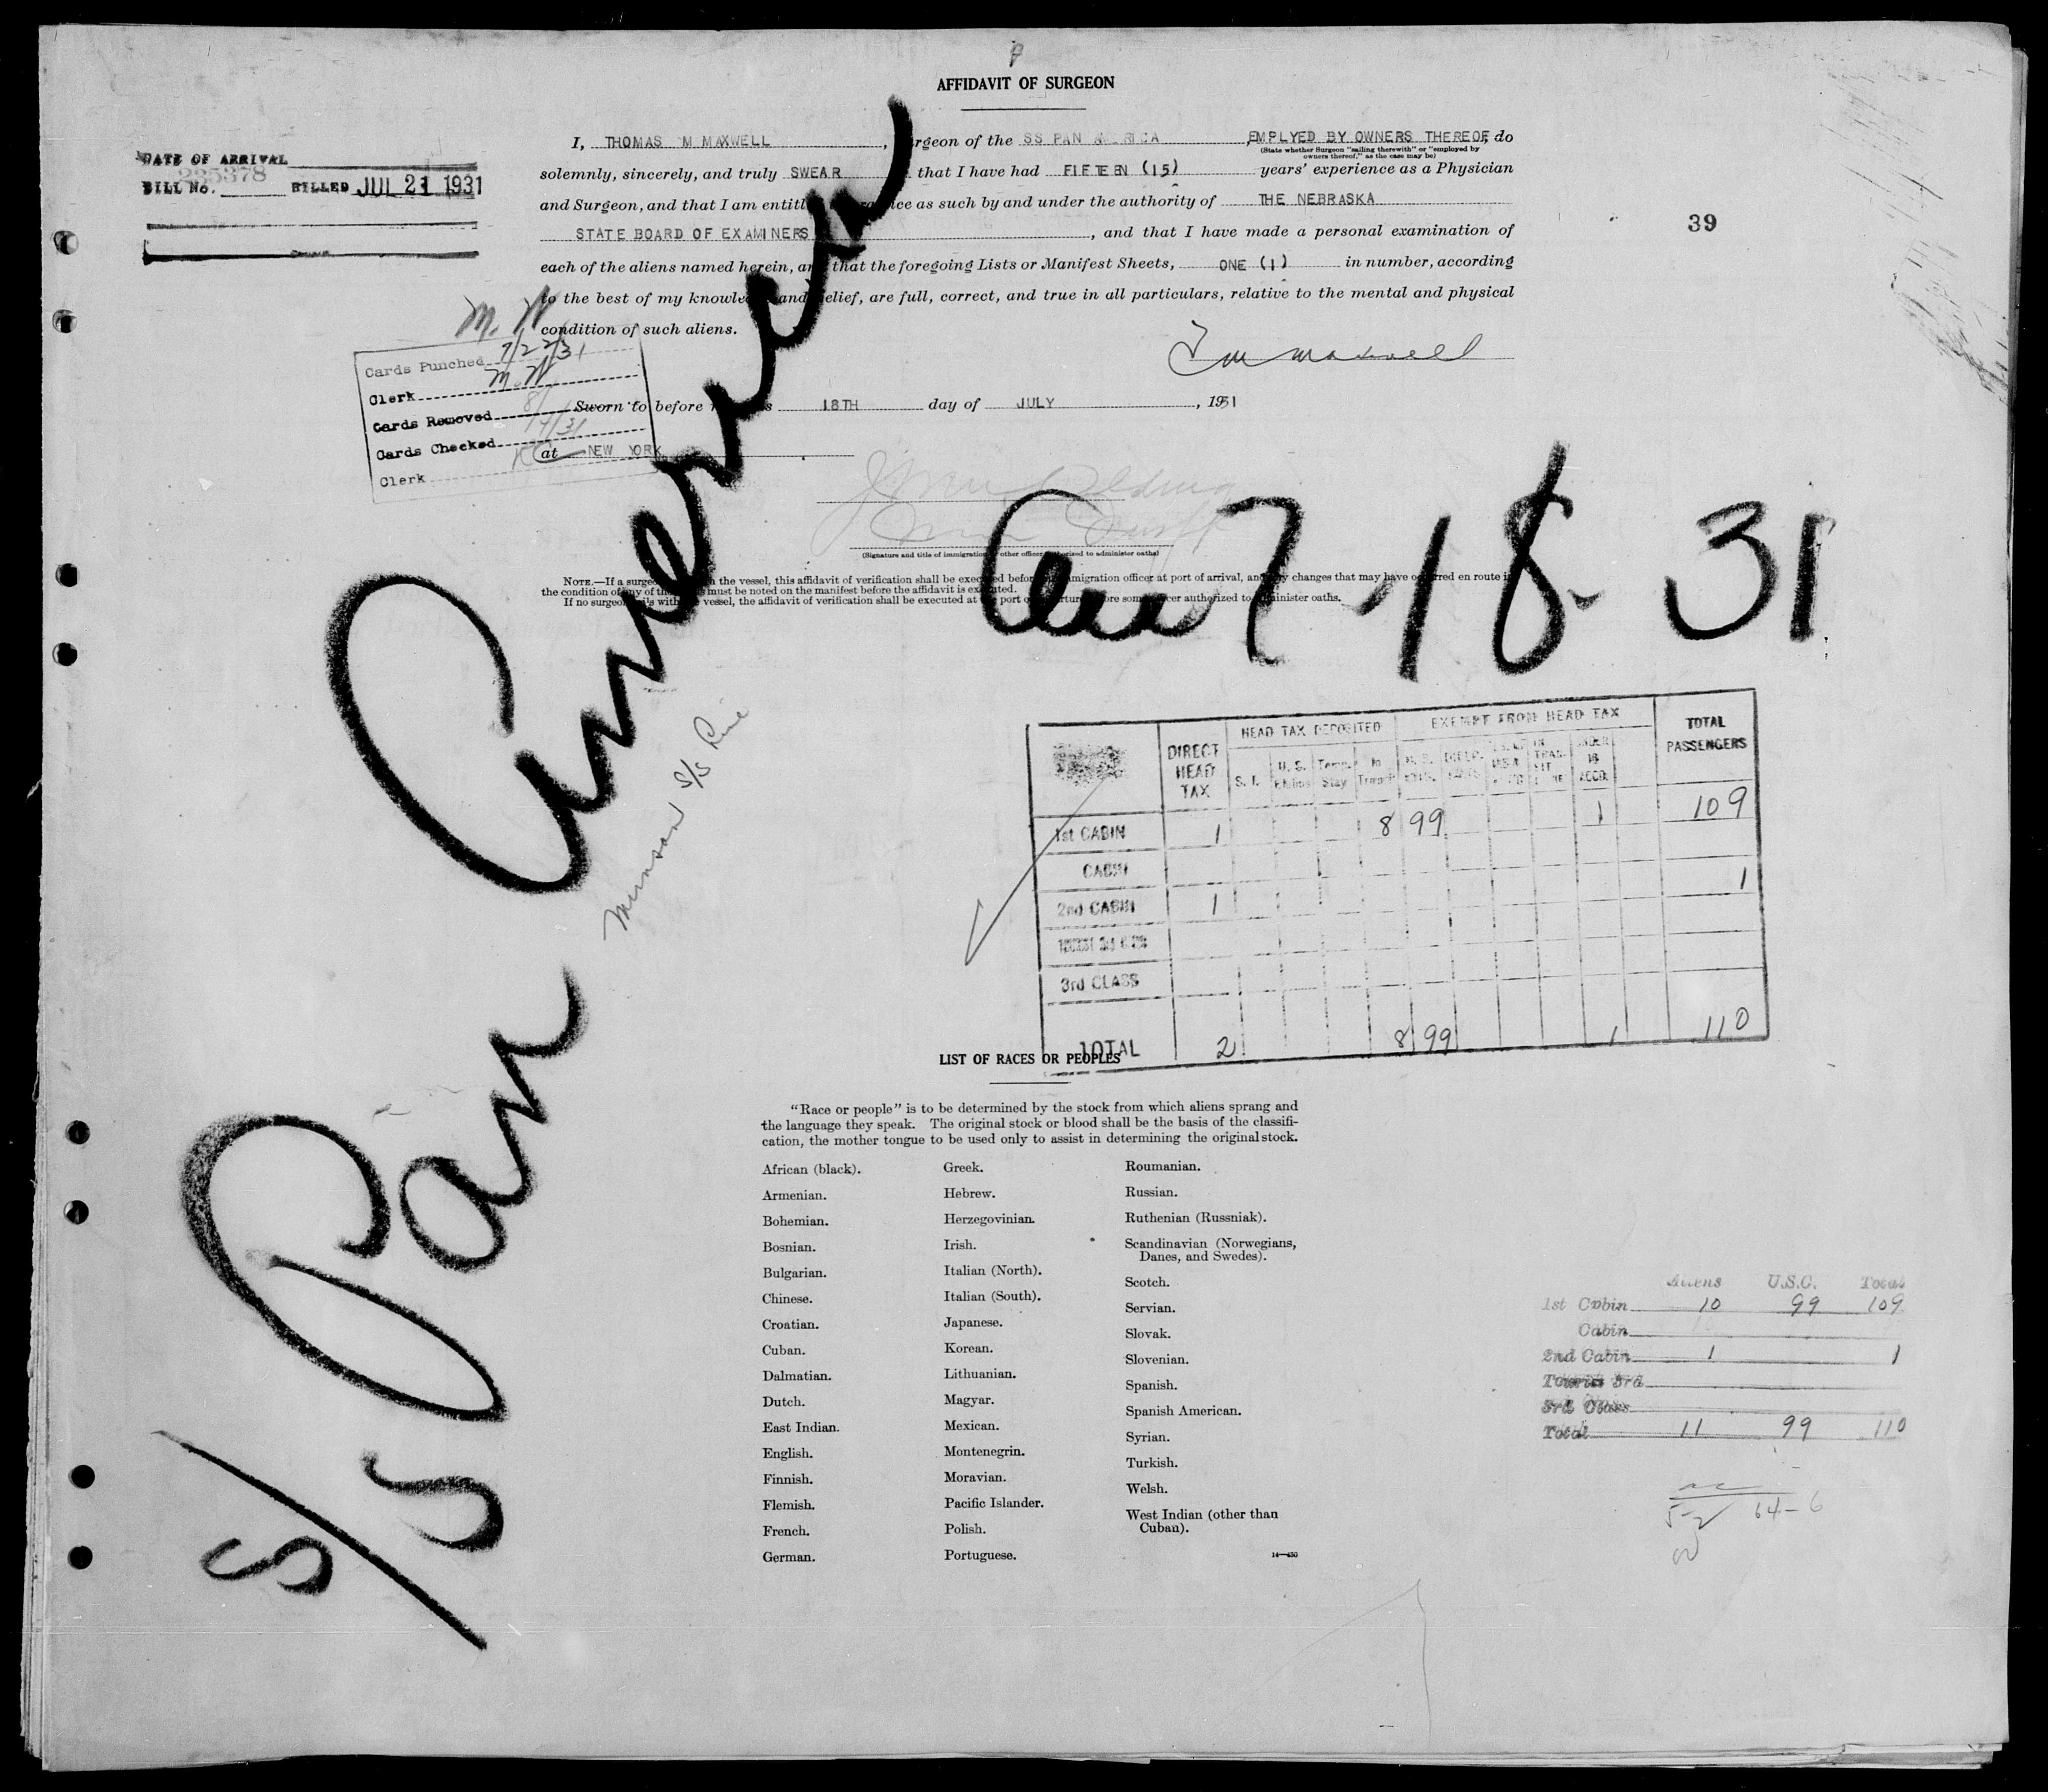 AFFIDAVIT OF SURGEON
DATE OF ARRIVAL
BILL No. 235378 BILLED JUL 21 1931
I, THOMAS M MAXWELL, rgeon of the SS PAN AMERICA, EMPLYED BY OWNERS THEREOF, do
(State whether Surgeon "sailing therewith" or "employed by
owners thereof," as the case may be)
solemnly, sincerely, and truly SWEAR that I have had FIFTEEN (15) years' experience as a Physician
and Surgeon, and that I am entitl ce as such by and under the authority of THE NEBRASKA
STATE BOARD OF EXAMINERS, and that I have made a personal examination of
39
each of the aliens named herein, and that the foregoing Lists or Manifest Sheets, ONE (1) in number, according
to the best of my knowle and elief, are full, correct, and true in all particulars, relative to the mental and physical
condition of such aliens.
T M Maxwell
M. W
Cards Punched 7/22/31
Clerk M. W
Cards Removed 8/
Cards Checked 14/31
Clerk
Sworn to before s 18TH day of JULY, 1931
at NEW YORK
(Signature and title of immigration other officer orized to administer oaths)
NOTE.—If a surge h the vessel, this affidavit of verification shall be executed befor migration officer at port of arrival, an y changes that may have occurred en route i
the condition of any of the must be noted on the manifest before the affidavit is executed.
If no surgeon ils with vessel, the affidavit of verification shall be executed at port of artur ore som cer authorized to inister oaths.
S/S Pan American
Arr 7-18-31
Munson S/S Line
DIRECT HEAD TAX
HEAD TAX DEPOSITED
EXEMPT FROM HEAD TAX
TOTAL PASSENGERS
S. I. U. S. Temp. Stay In U. S. UNDER 16 ACCD.
1st CABIN 1 8 99 1 109
CABIN
2nd CABIN 1 1
3rd CLASS
TOTAL 2 8 99 1 110
LIST OF RACES OR PEOPLES
"Race or people" is to be determined by the stock from which aliens sprang and
the language they speak. The original stock or blood shall be the basis of the classifi-
cation, the mother tongue to be used only to assist in determining the original stock.
African (black).
Armenian.
Bohemian.
Bosnian.
Bulgarian.
Chinese.
Croatian.
Cuban.
Dalmatian.
Dutch.
East Indian.
English.
Finnish.
Flemish.
French.
German.
Greek.
Hebrew.
Herzegovinian.
Irish.
Italian (North).
Italian (South).
Japanese.
Korean.
Lithuanian.
Magyar.
Mexican.
Montenegrin.
Moravian.
Pacific Islander.
Polish.
Portuguese.
Roumanian.
Russian.
Ruthenian (Russniak).
Scandinavian (Norwegians,
Danes, and Swedes).
Scotch.
Servian.
Slovak.
Slovenian.
Spanish.
Spanish American.
Syrian.
Turkish.
Welsh.
West Indian (other than
Cuban).
14—430
Aliens U.S.C. Total
1st Cabin 10 99 109
Cabin
2nd Cabin 1 1
Tourist 3rd
3rd Class
Total 11 99 110
5-2 64-6